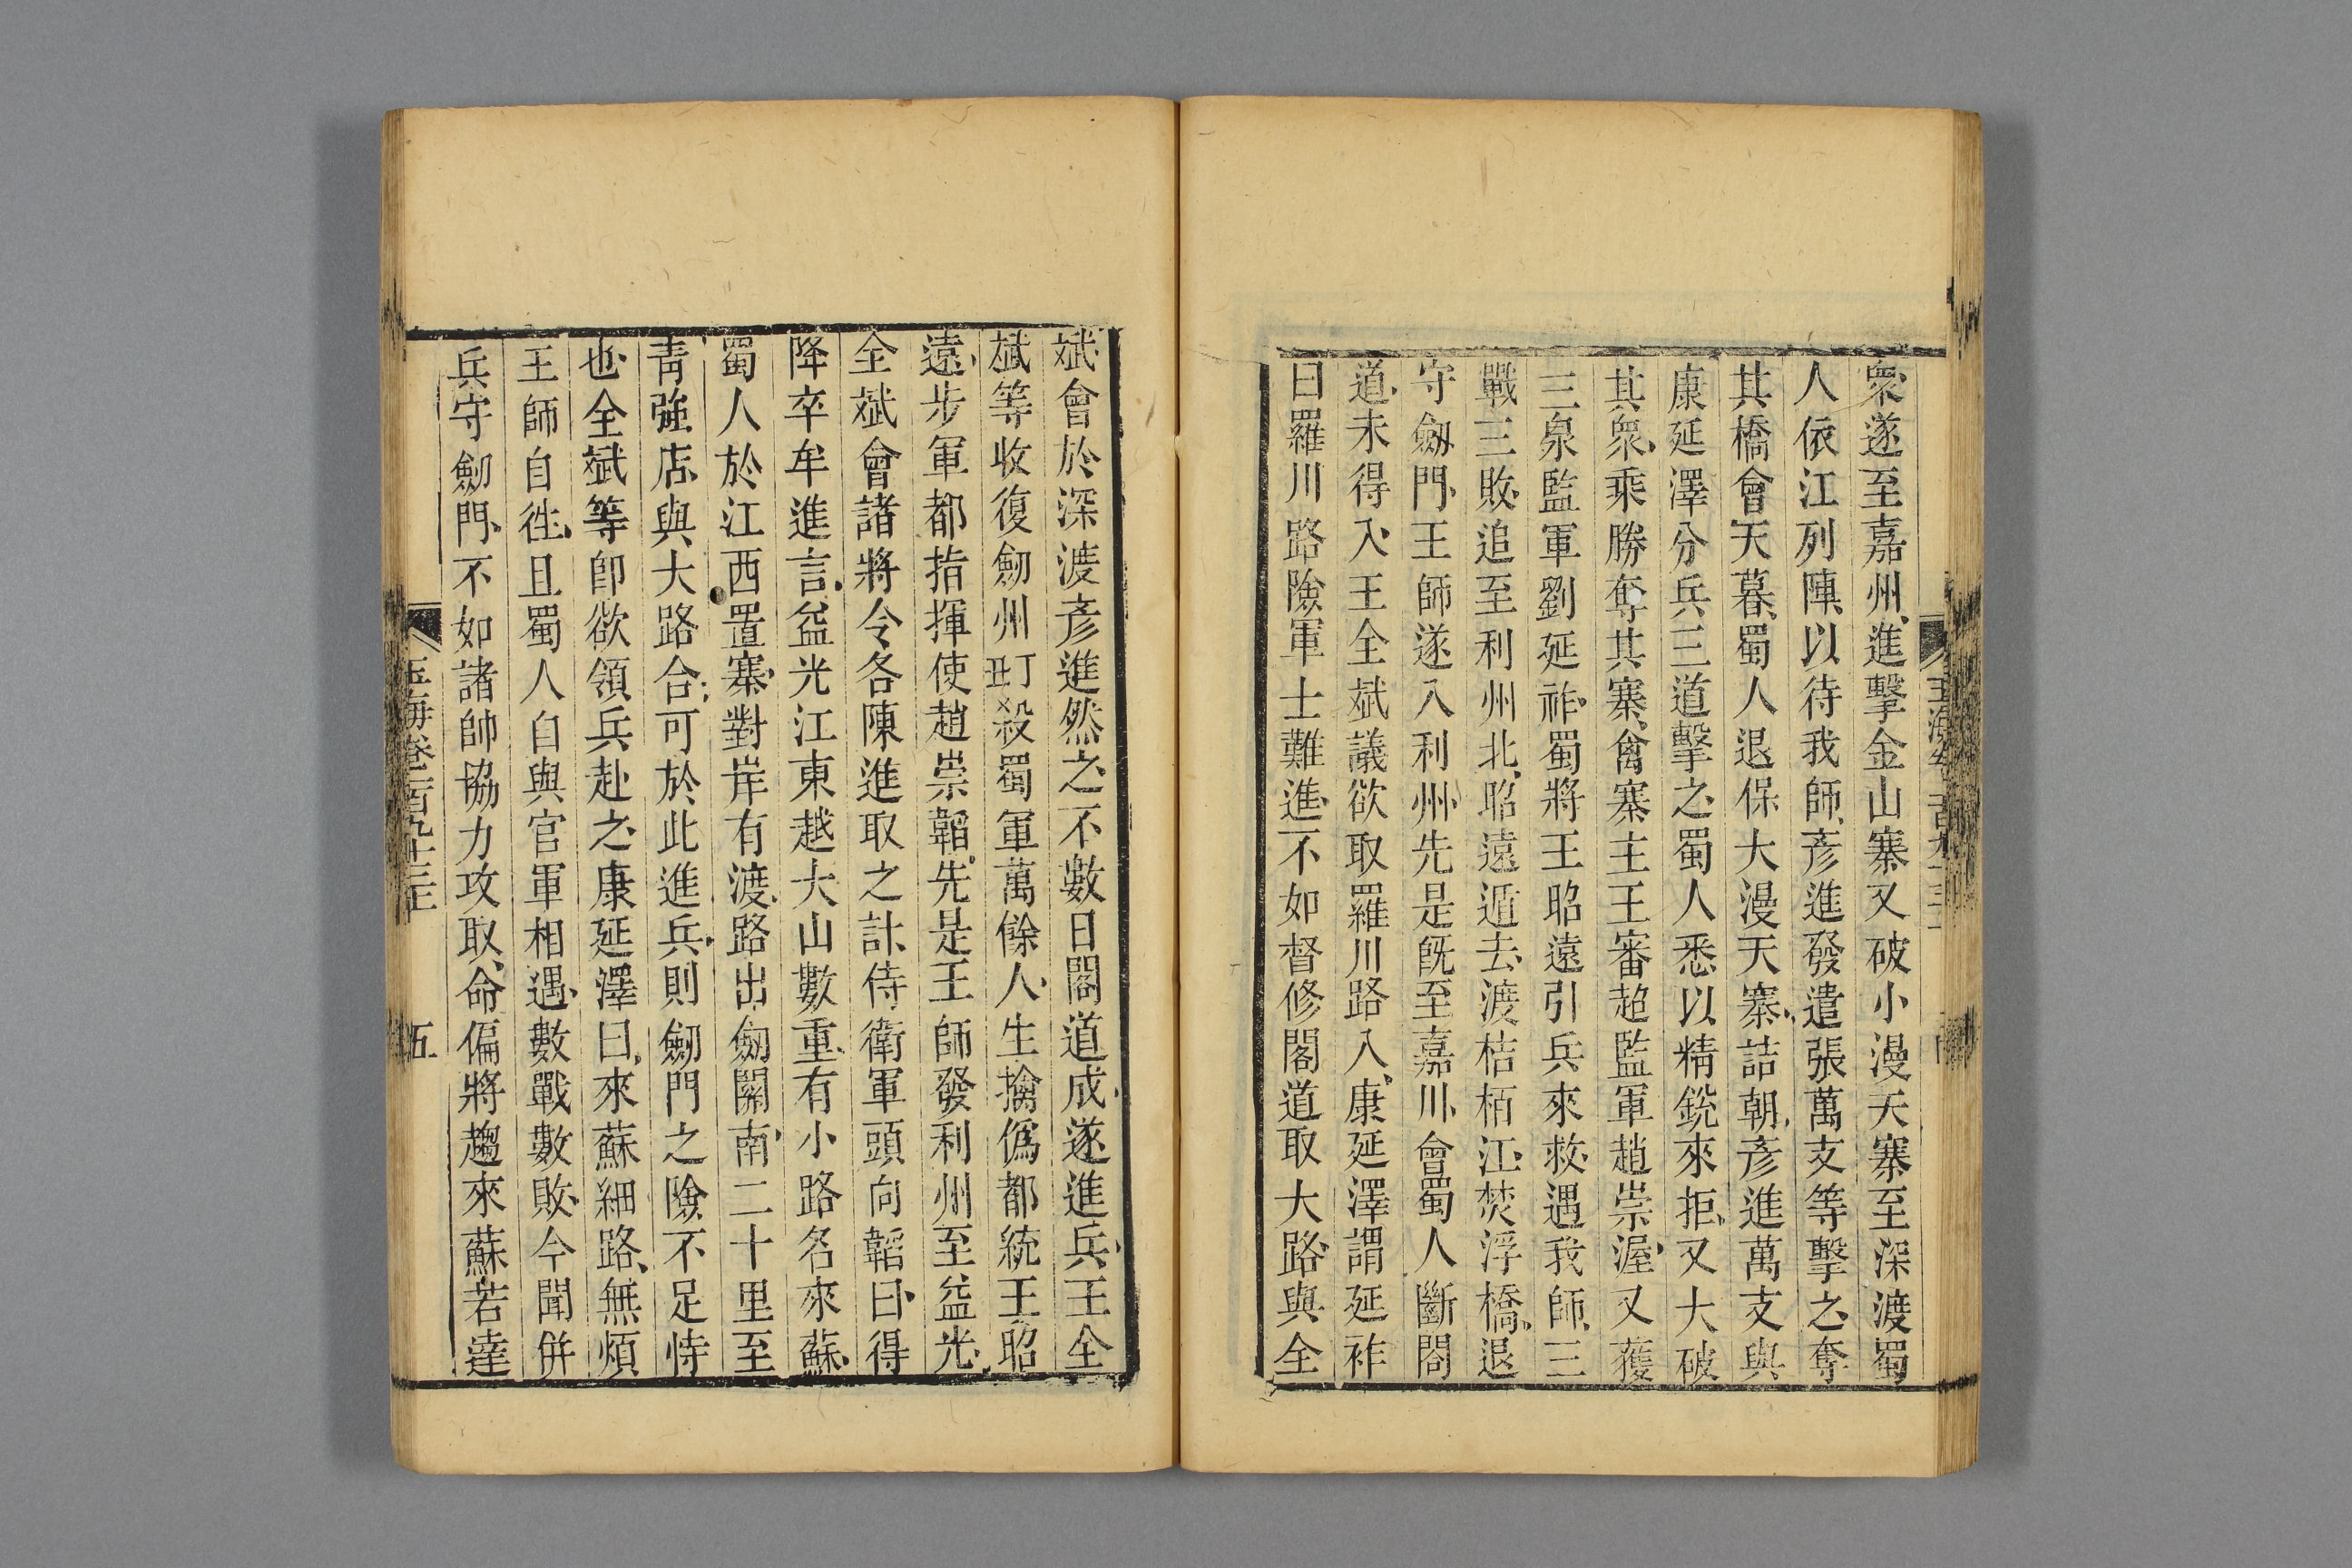 衆遂至嘉州進擊金山寨又破小漫天寨至深渡蜀
人依江列陣以待我師彥進發遣張萬支等擊之奪
其橋會天暮蜀人退保大漫天寨詰朝彥進萬支與
康延澤分兵三道擊之蜀人悉以精銳來拒又大破
其衆乘勝奪其寨禽寨主王審超監軍趙崇渥又獲
三泉監軍劉延祚蜀將王昭遠引兵來救遇我師三
戰三敗追至利州北昭遠遁去渡桔栢江焚浮橋退
守劔門王師遂入利州先是旣至嘉川會蜀人斷閣
道未得入王全斌議欲取羅川路入康延澤謂延祚
曰羅川路險軍士難進不如督修閣道取大路與全
斌會於深渡彥進然之不數日閣道成遂進兵王全
斌等收復劒州殺蜀軍萬餘人生擒僞都統王昭
遠步軍都指揮使趙崇韜先是王師發利州至益光
全斌會諸將令各陳進取之計侍衛軍頭向韜曰得
降卒牟進言益光江東越大山數重有小路名來蘇
蜀人於江西置寨對岸有渡路出劒關南二十里至
靑強店與大路合可於此進兵則劒門之險不足恃
也全斌等卽欲領兵赴之康延澤曰來蘇細路無煩
王師自徃且蜀人自與官軍相遇數戰數敗今聞併
兵守劒門不如諸帥協力攻取命偏將趨來蘇若達
玉海卷一百九十三上
五